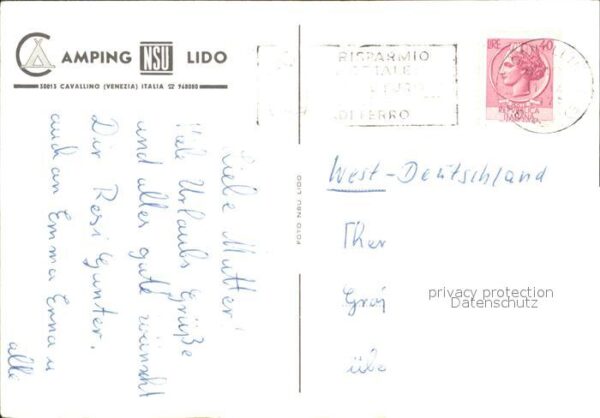 CAMPING NSU LIDO
30013 CAVALLINO (VENEZIA) ITALIA ☎ 968080
RISPARMIO
POSTALE
DI FERRO
LIRE 40
REPUBBLICA
ITALIANA
Liebe Mutter!
Viele Urlaubs Grüße
und alles gute wünscht
Dir Resi Gunter.
auch an Emma Erna u
alle
FOTO NSU LIDO
West-Deutschland
Ther
Groß
übe
privacy protection
Datenschutz